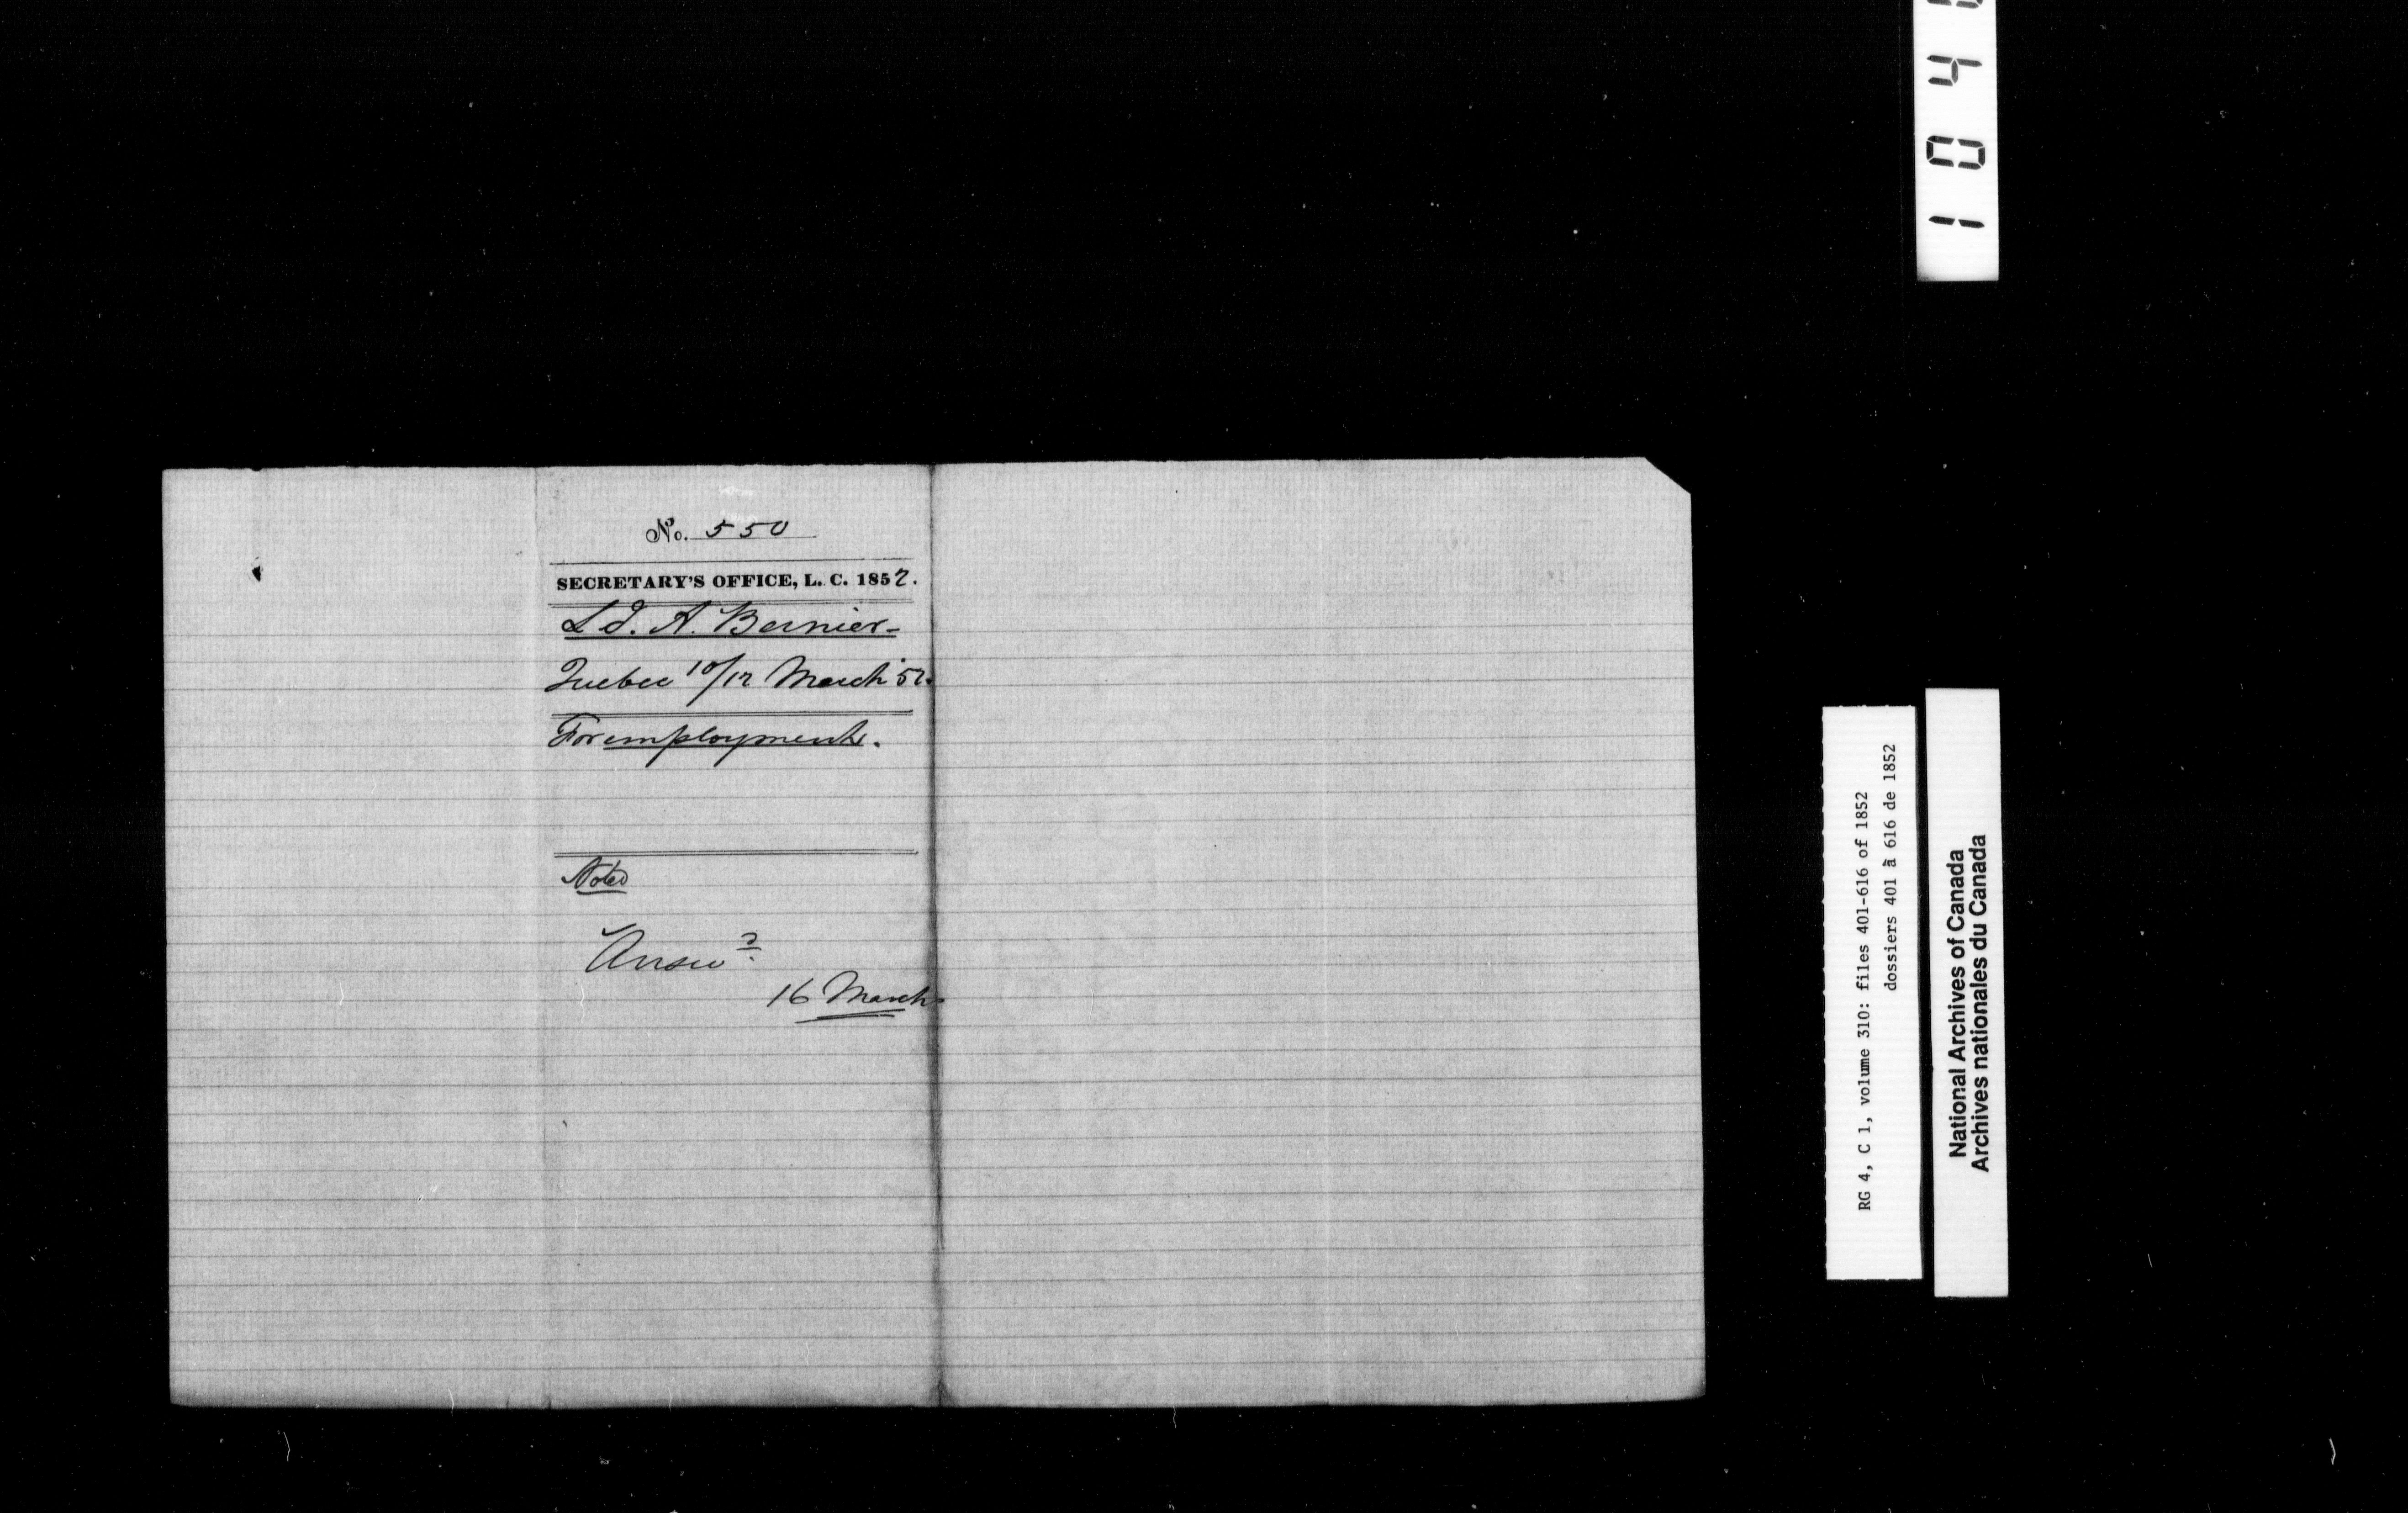 No. 550
SECRETARY'S OFFICE, L. C. 1852.
Ld. A. Bernier-
Quebec 10/12 March '52.
For employment.
Noted
Answd.
16 March
1 0 4
RG 4, C 1, volume 310: files 401-616 of 1852
dossiers 401 à 616 de 1852
National Archives of Canada
Archives nationales du Canada